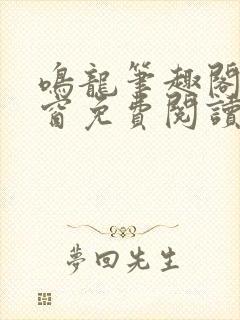 鳴龍筆趣閣
窗免費閱讀
夢回先生